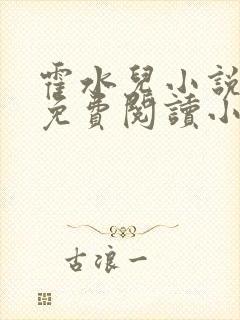 霍水兒小說
免費閱讀小
古浪一